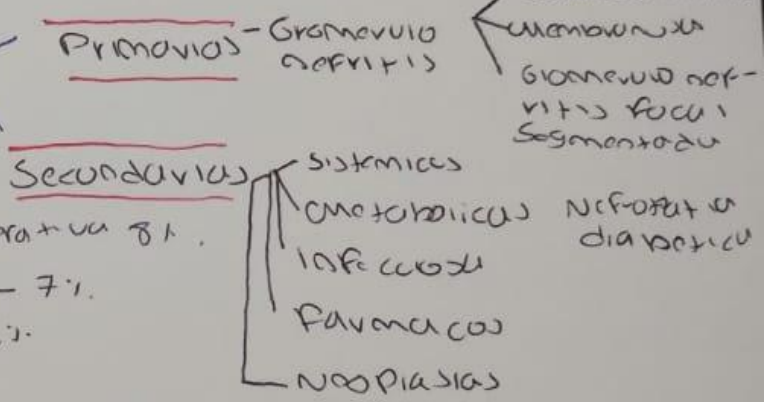 Primarias - Gromerulo
nefritis
membranosa
Glomerulo nef-
ritis focal
Segmentada
Secundarias
Sistemicas
metabolicas Nefropatia
diabetica
Infecciosa
Farmacos
Neoplasias
rativa 8%.
- 7%.
%.